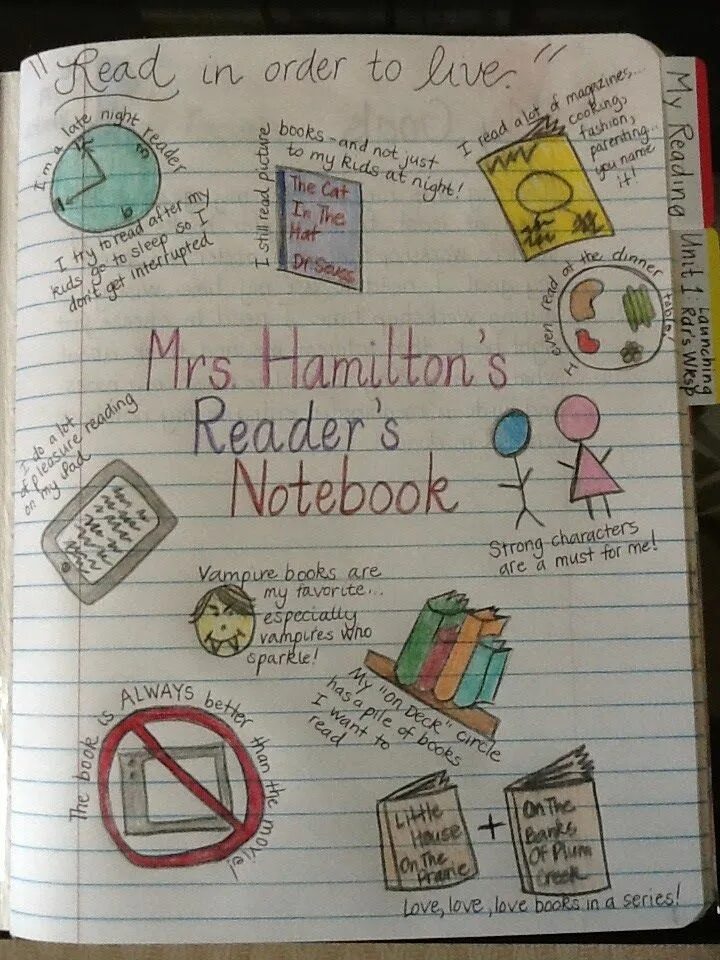 "Read in order to live."
I'm a late night reader
12
3
6
9
I try to read after my
kids go to sleep so I
don't get interrupted
I still read picture
books - and not just
to my kids at night!
The Cat
In The
Hat
Dr. Seuss
I read a lot of magazines...
cooking,
fashion,
parenting...
you name
it!
My Reading
Unit 1: Launching
Rdr's Wksp
I even read at the dinner
table!
Mrs. Hamilton's
Reader's
Notebook
I do a lot
of pleasure reading
on my iPad
Strong characters
are a must for me!
Vampire books are
my favorite...
especially
vampires who
sparkle!
My "On Deck" circle
has a pile of books
I want to
read
The book is ALWAYS better than the movie!
Little
House
On The
Prairie
+
On The
Banks
Of Plum
Creek
Love, love, love books in a series!